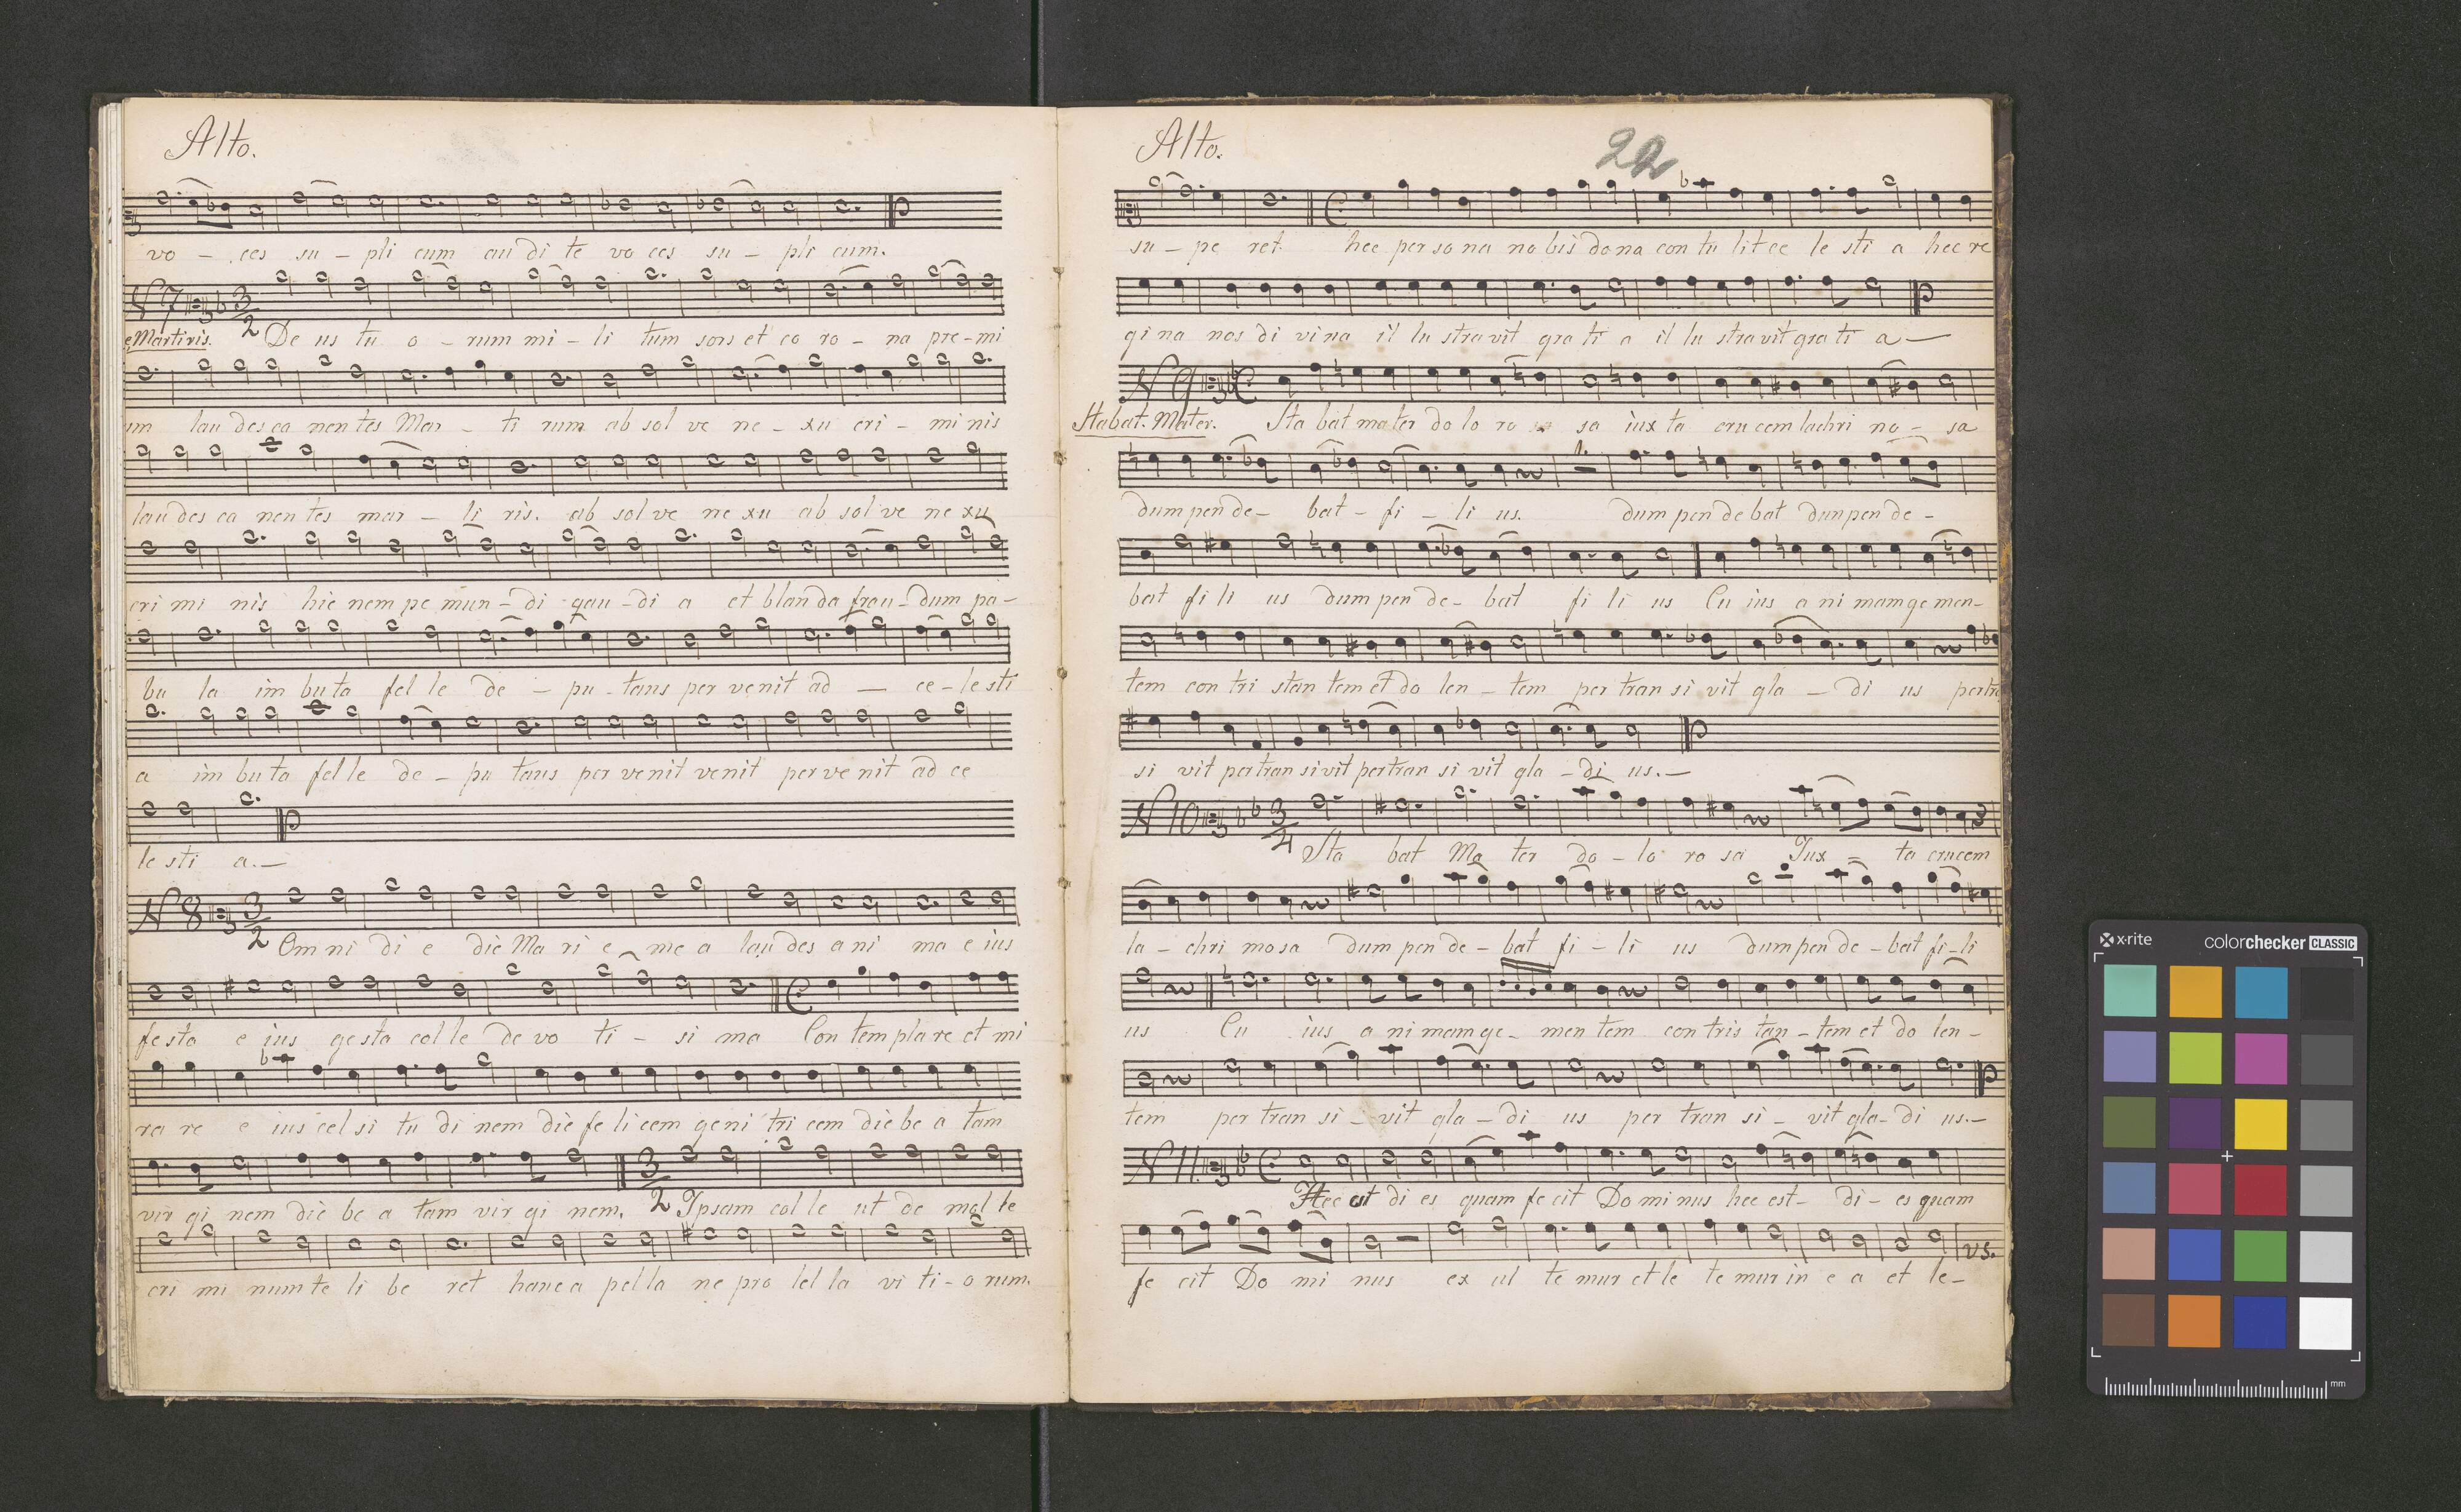 Alto.
vo - ces su - pli cum au di te vo ces su - pli cum.
N 7 3/2
Martiris. De us tu o - rum mi - li tum sors et co ro - na pre - mi
um lau des ca nen tes Mar - ti rum ab sol ve ne - xu cri - mi nis
lau des ca nen tes mar - ti ris. ab sol ve ne xu ab sol ve ne xu
cri mi nis hic nem pe mun - di gau - di a et blan da frau - dum pa -
bu la im bu ta fel le de - pu - tans per venit ad — ce - le sti
a im bu ta fel le de - pu tans per ve nit venit per ve nit ad ce
le sti a. —
N 8 3/2
Om ni di e dic Ma ri e - me a lau des a ni ma e ius
fe sta e ius ge sta col le de vo ti - si ma Con tem pla re et mi
ra re e ius cel si tu di nem dic fe li cem ge ni tri cem dic be a tam
vir gi nem dic be a tam vir gi nem. 3/2 Ipsam col le ut de mol le
cri mi num te li be ret hanc a pel la ne pro lel la vi ti - o rum.
Alto.
22
su - pe ret. hec per so na no bis do na con tu lit ce le sti a hec re
gi na nos di vi na il lu stra vit gra ti a il lu stra vit gra ti a —
N 9
Stabat. Mater. Sta bat ma ter do lo ro sa iux ta cru cem lachri mo - sa
dum pen de - bat - fi - li us. dum pen de bat dum pen de -
bat fi li us dum pen de - bat fi li us Cu ius a ni mam ge men -
tem con tri stan tem et do len - tem per tran si vit gla - di us pertra
si vit pertran sivit pertran si vit gla - di us. —
N 10 3/4
Sta bat Ma ter do - lo ro sa Iux = ta crucem
la - chri mosa dum pen de - bat fi - li us dum pen de - bat fi - li
us Cu ius a ni mam ge - men tem con tris tan - tem et do len -
tem per tran si - vit gla - di us per tran si - vit gla - di us. —
N 11.
Hec est di es quam fe cit Do mi nus hec est - di - es quam
vs.
fe cit Do mi nus ex ul te mur et le te mur in e a et le -
x·rite colorchecker CLASSIC
mm